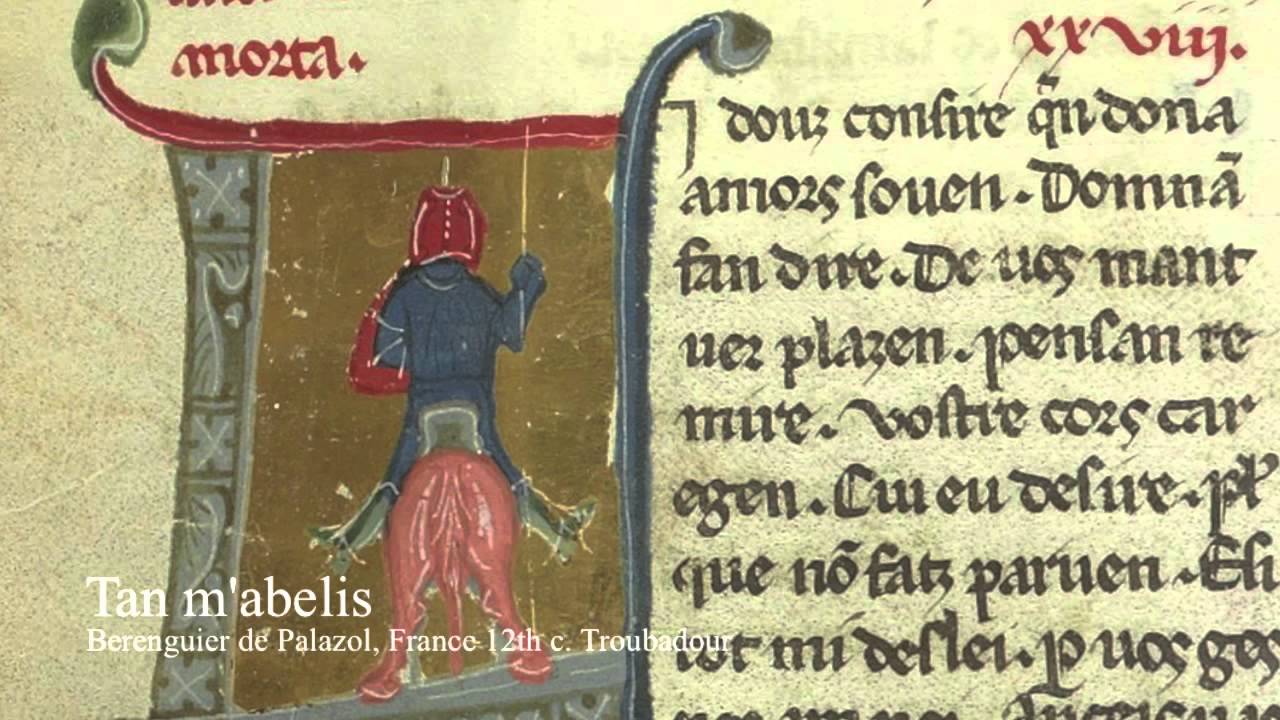 morta.
xxviij.
douz consire q̃n dona
amors souen. Domnã
fan dire. De uos mant
uer plazen. pensan re
mire. Vostre cors car
egen. Cui eu desire. pl'
que nõ fatz paruen. E si
tot mi deslei. p uos ges
Tan m'abelis
Berenguier de Palazol, France 12th c. Troubadour